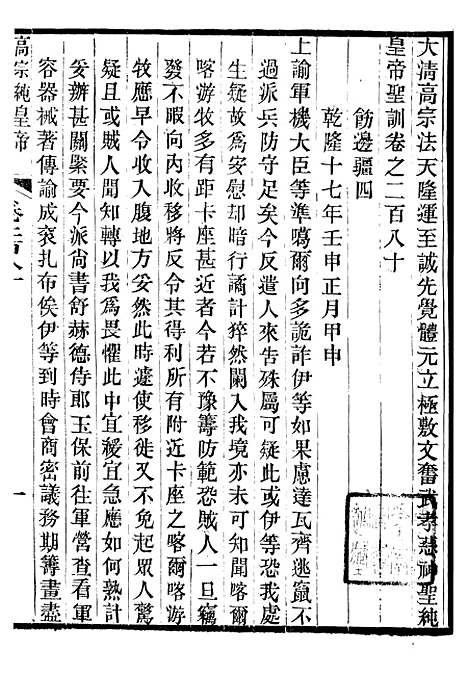 大清高宗法天隆運至誠先覺體元立極敷文奮武孝慈神聖純
皇帝聖訓卷之二百八十
飭邊疆四
乾隆十七年壬申正月甲申
上諭軍機大臣等準噶爾向多詭詐伊等如果慮達瓦齊逃竄不
過派兵防守足矣今反遣人來告殊屬可疑此或伊等恐我處
生疑故爲安慰却暗行譎計猝然闌入我境亦未可知聞喀爾
喀游牧多有距卡座甚近者今若不豫籌防範恐賊人一旦竊
發不暇向內移徙將反令其得利所有附近卡座之喀爾喀游
牧應早令收入腹地方妥然此時遽使移徙又恐起眾人驚
疑且或賊人聞知轉以我爲畏懼此中宜緩宜急應如何熟計
妥辦甚關緊要今派尚書舒赫德侍郎玉保前往軍營查看軍
容器械著傳諭成袞扎布俟伊等到時會商密議務期籌畫盡
高宗純皇帝
卷二百八十
一